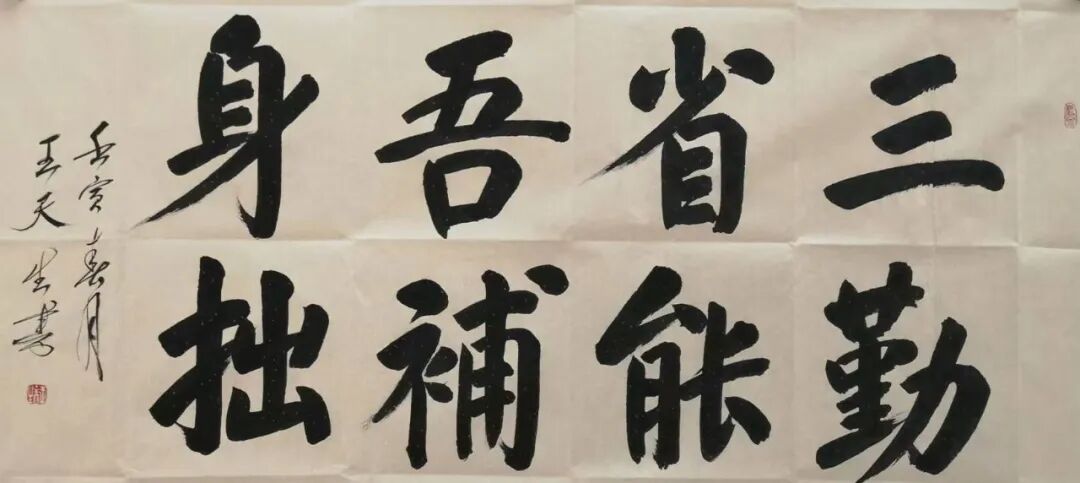 三省吾身
勤能補拙
壬寅春月
王天生書